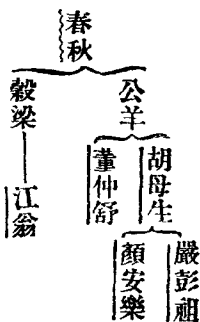 春秋
公羊
胡母生
嚴彭祖
顏安樂
董仲舒
穀梁
江翁